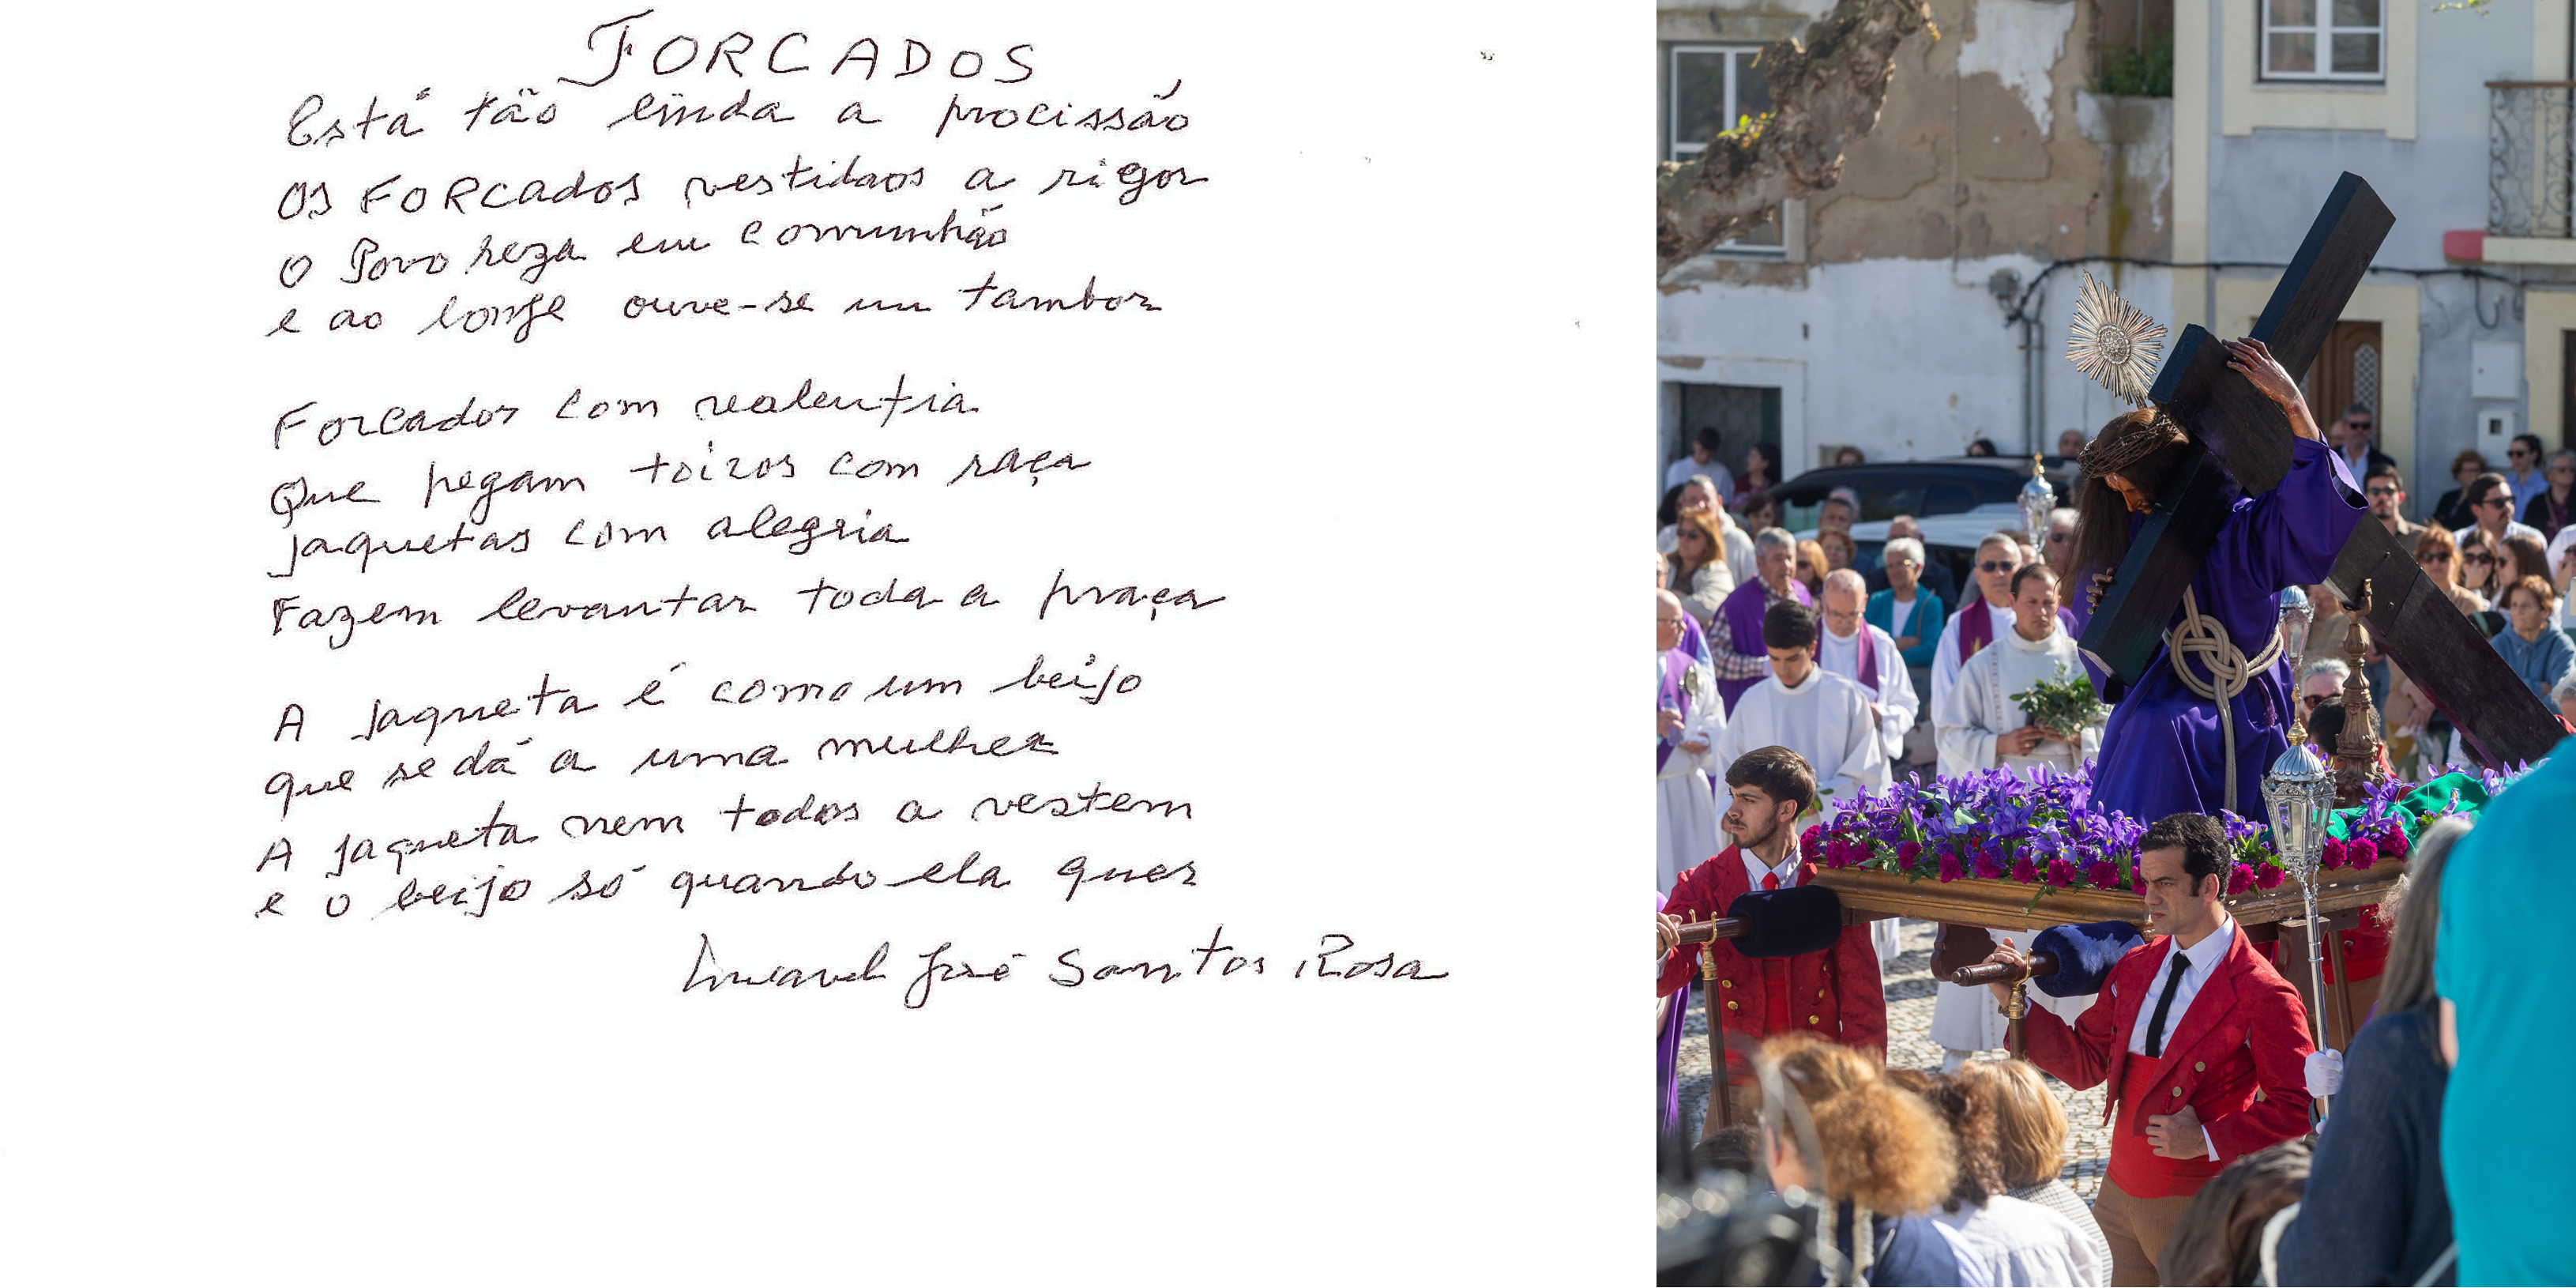 FORCADOS
Está tão linda a procissão
Os FORCados vestidaos a rigor
O Povo reza em comunhão
e ao longe ouve-se um tambor
Forcados com vealentia
Que pegam toiros com raça
Jaquetas com alegria
Fazem levantar toda a praça
A Jaqueta é como um beijo
que se dá a uma mulher
A Jaqueta nem todos a vestem
e o beijo só quando ela quer
Manuel José Santos Rosa